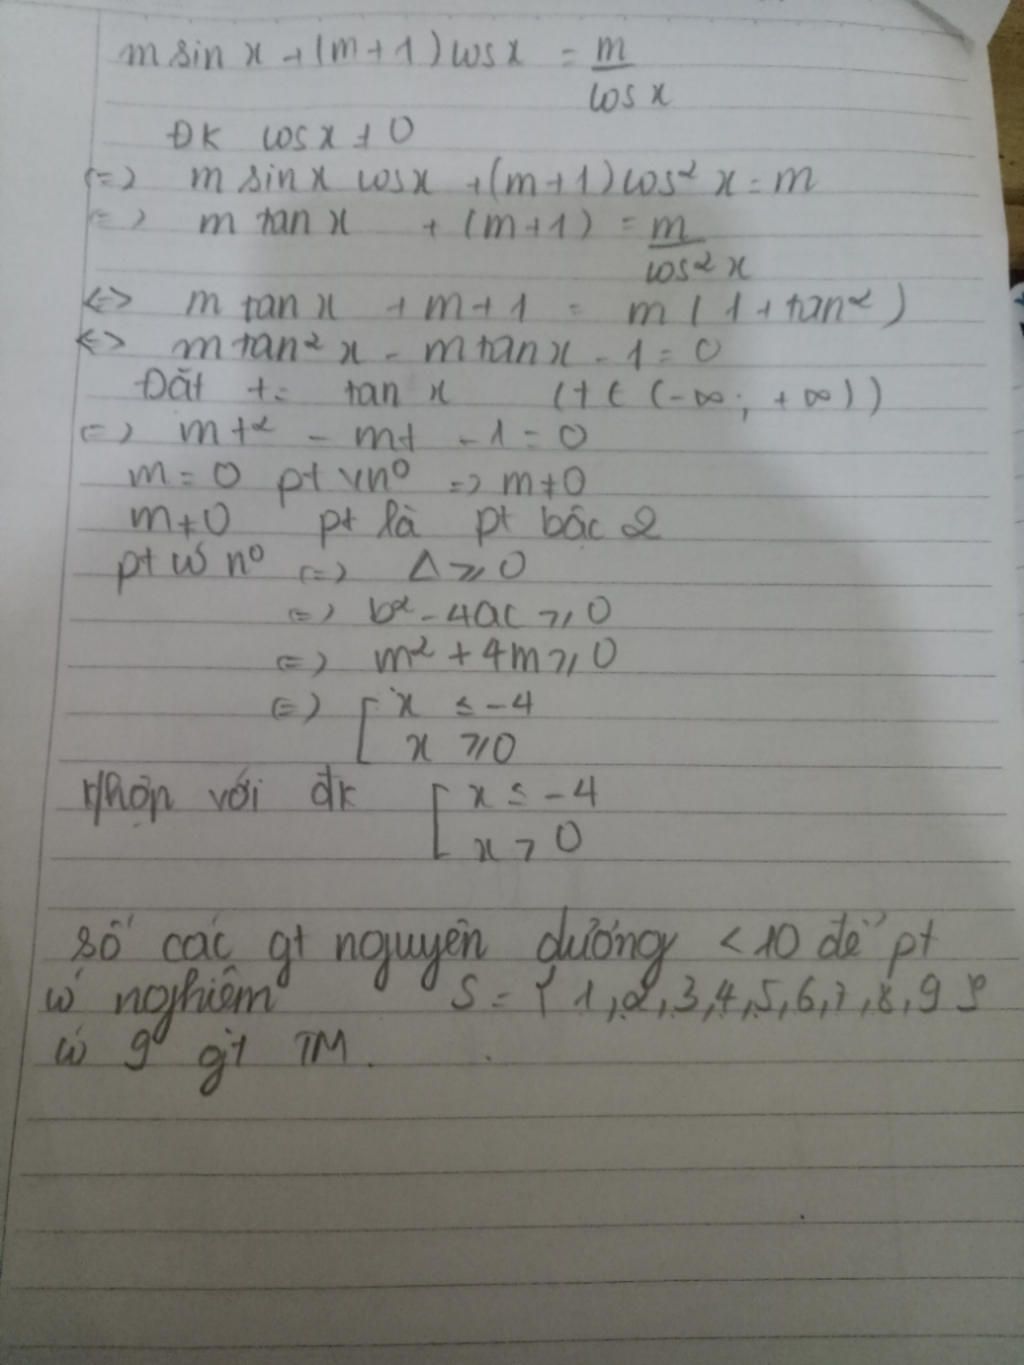 m sin x + (m+1) cos x = m/cos x
ĐK cos x ≠ 0
(=) m sin x cos x + (m+1) cos² x = m
(=) m tan x + (m+1) = m/cos² x
<=> m tan x + m + 1 = m (1 + tan²)
<=> m tan² x - m tan x - 1 = 0
Đặt t = tan x (t ∈ (-∞; +∞))
(=) mt² - mt - 1 = 0
m = 0 pt vn⁰ => m ≠ 0
m ≠ 0 pt là pt bậc 2
pt có n⁰ (=) Δ ⩾ 0
(=) b² - 4ac ⩾ 0
(=) m² + 4m ⩾ 0
(=) [ x ≤ -4
x ⩾ 0
Khợp với đk [ x ≤ -4
x > 0
số các gt nguyên dương < 10 để pt
có nghiệm S = { 1, 2, 3, 4, 5, 6, 7, 8, 9 }
có 9 gt TM.